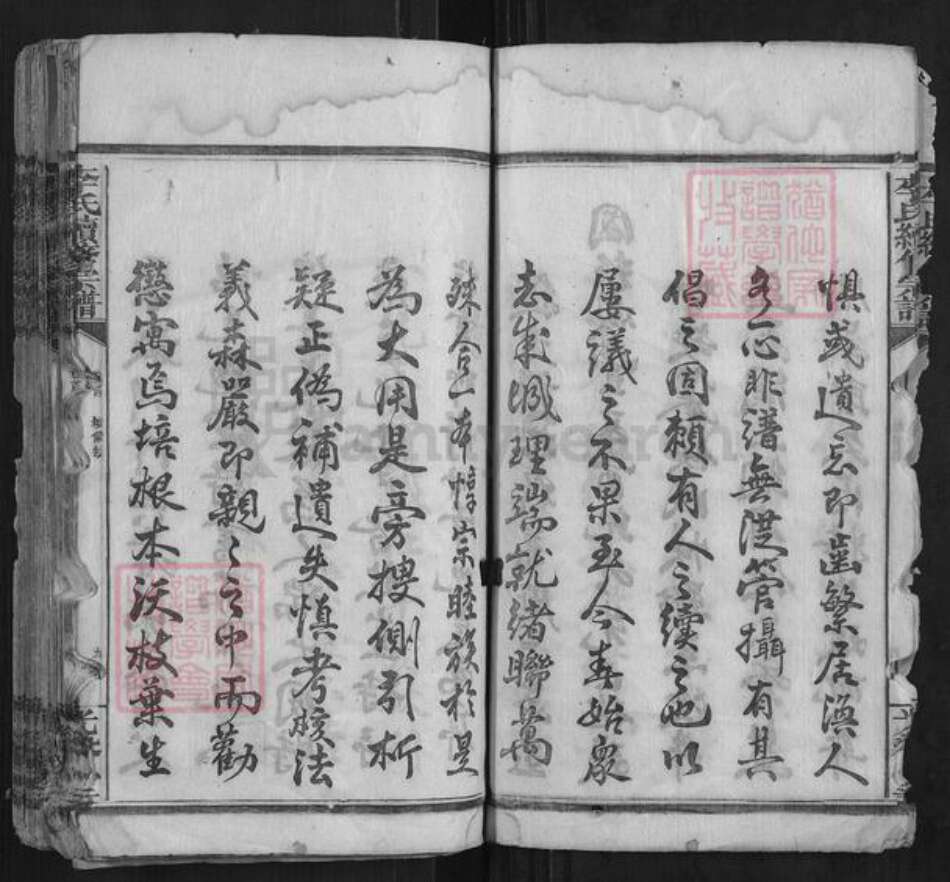 懼或遺忘即齒繁居渙人
各心非譜無從管攝有其
倡之固賴有人之續之也以
屢議之不果至今春始衆
志成城理端就緒聯萬
殊合一本惇宗睦族於是
為大用是旁搜側引析
疑正偽補遺失慎考核法
義森嚴即親之之中而勸
懲寓焉培根本沃枝葉生
李氏續修宗譜